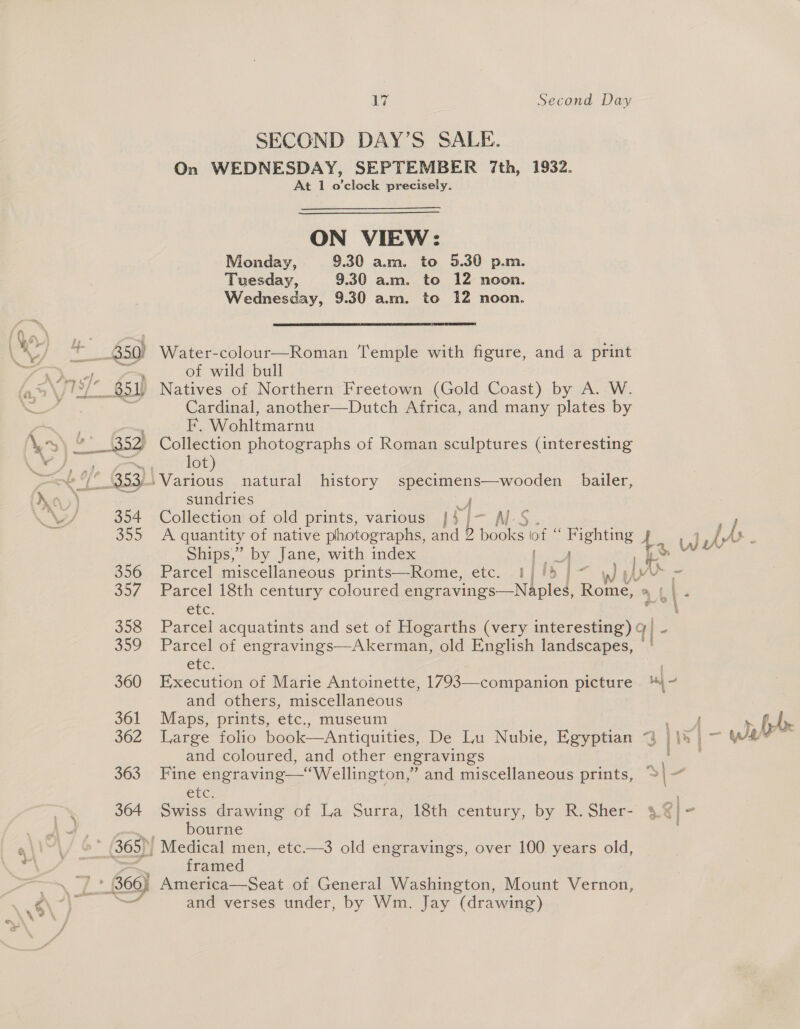 17 Second Day
SECOND DAY'S SALE.
On WEDNESDAY, SEPTEMBER 7th, 1932.
At 1 o'clock precisely.
ON VIEW:
Monday, 9.30 a.m. to 5.30 p.m.
Tuesday, 9.30 a.m. to 12 noon.
Wednesday, 9.30 a.m. to 12 noon.
350 Water-colour—Roman Temple with figure, and a print
of wild bull
351 Natives of Northern Freetown (Gold Coast) by A. W.
Cardinal, another—Dutch Africa, and many plates by
F. Wohltmarnu
352 Collection photographs of Roman sculptures (interesting
lot)
353 Various natural history specimens—wooden bailer,
sundries
354 Collection of old prints, various N.S.
355 A quantity of native photographs, and 2 books of "Fighting
Ships," by Jane, with index
356 Parcel miscellaneous prints—Rome, etc.
357 Parcel 18th century coloured engravings—Naples, Rome,
etc.
358 Parcel acquatints and set of Hogarths (very interesting)
359 Parcel of engravings—Akerman, old English landscapes,
etc.
360 Execution of Marie Antoinette, 1793—companion picture
and others, miscellaneous
361 Maps, prints, etc., museum
362 Large folio book—Antiquities, De Lu Nubie, Egyptian
and coloured, and other engravings
363 Fine engraving—"Wellington," and miscellaneous prints,
etc.
364 Swiss drawing of La Surra, 18th century, by R. Sher-
bourne
365 Medical men, etc.—3 old engravings, over 100 years old,
framed
366 America—Seat of General Washington, Mount Vernon,
and verses under, by Wm. Jay (drawing)